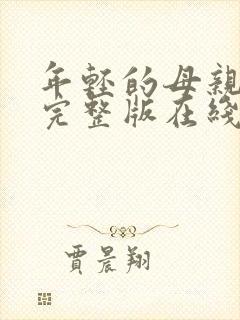 年轻的母親
完整版在綫
賈晨翔